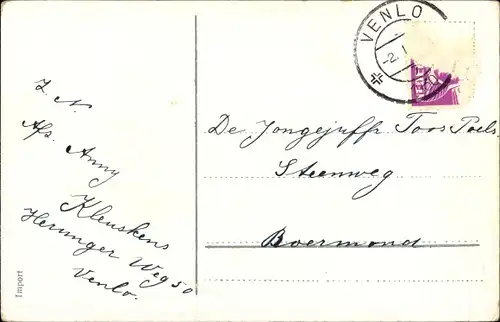 VENLO
-2.1
Z. N.
Afz. Anny
Kleuskens
Herunger Weg 50
Venlo.
De Jongejuffr Toos Poels
Steenweg
Roermond
Import